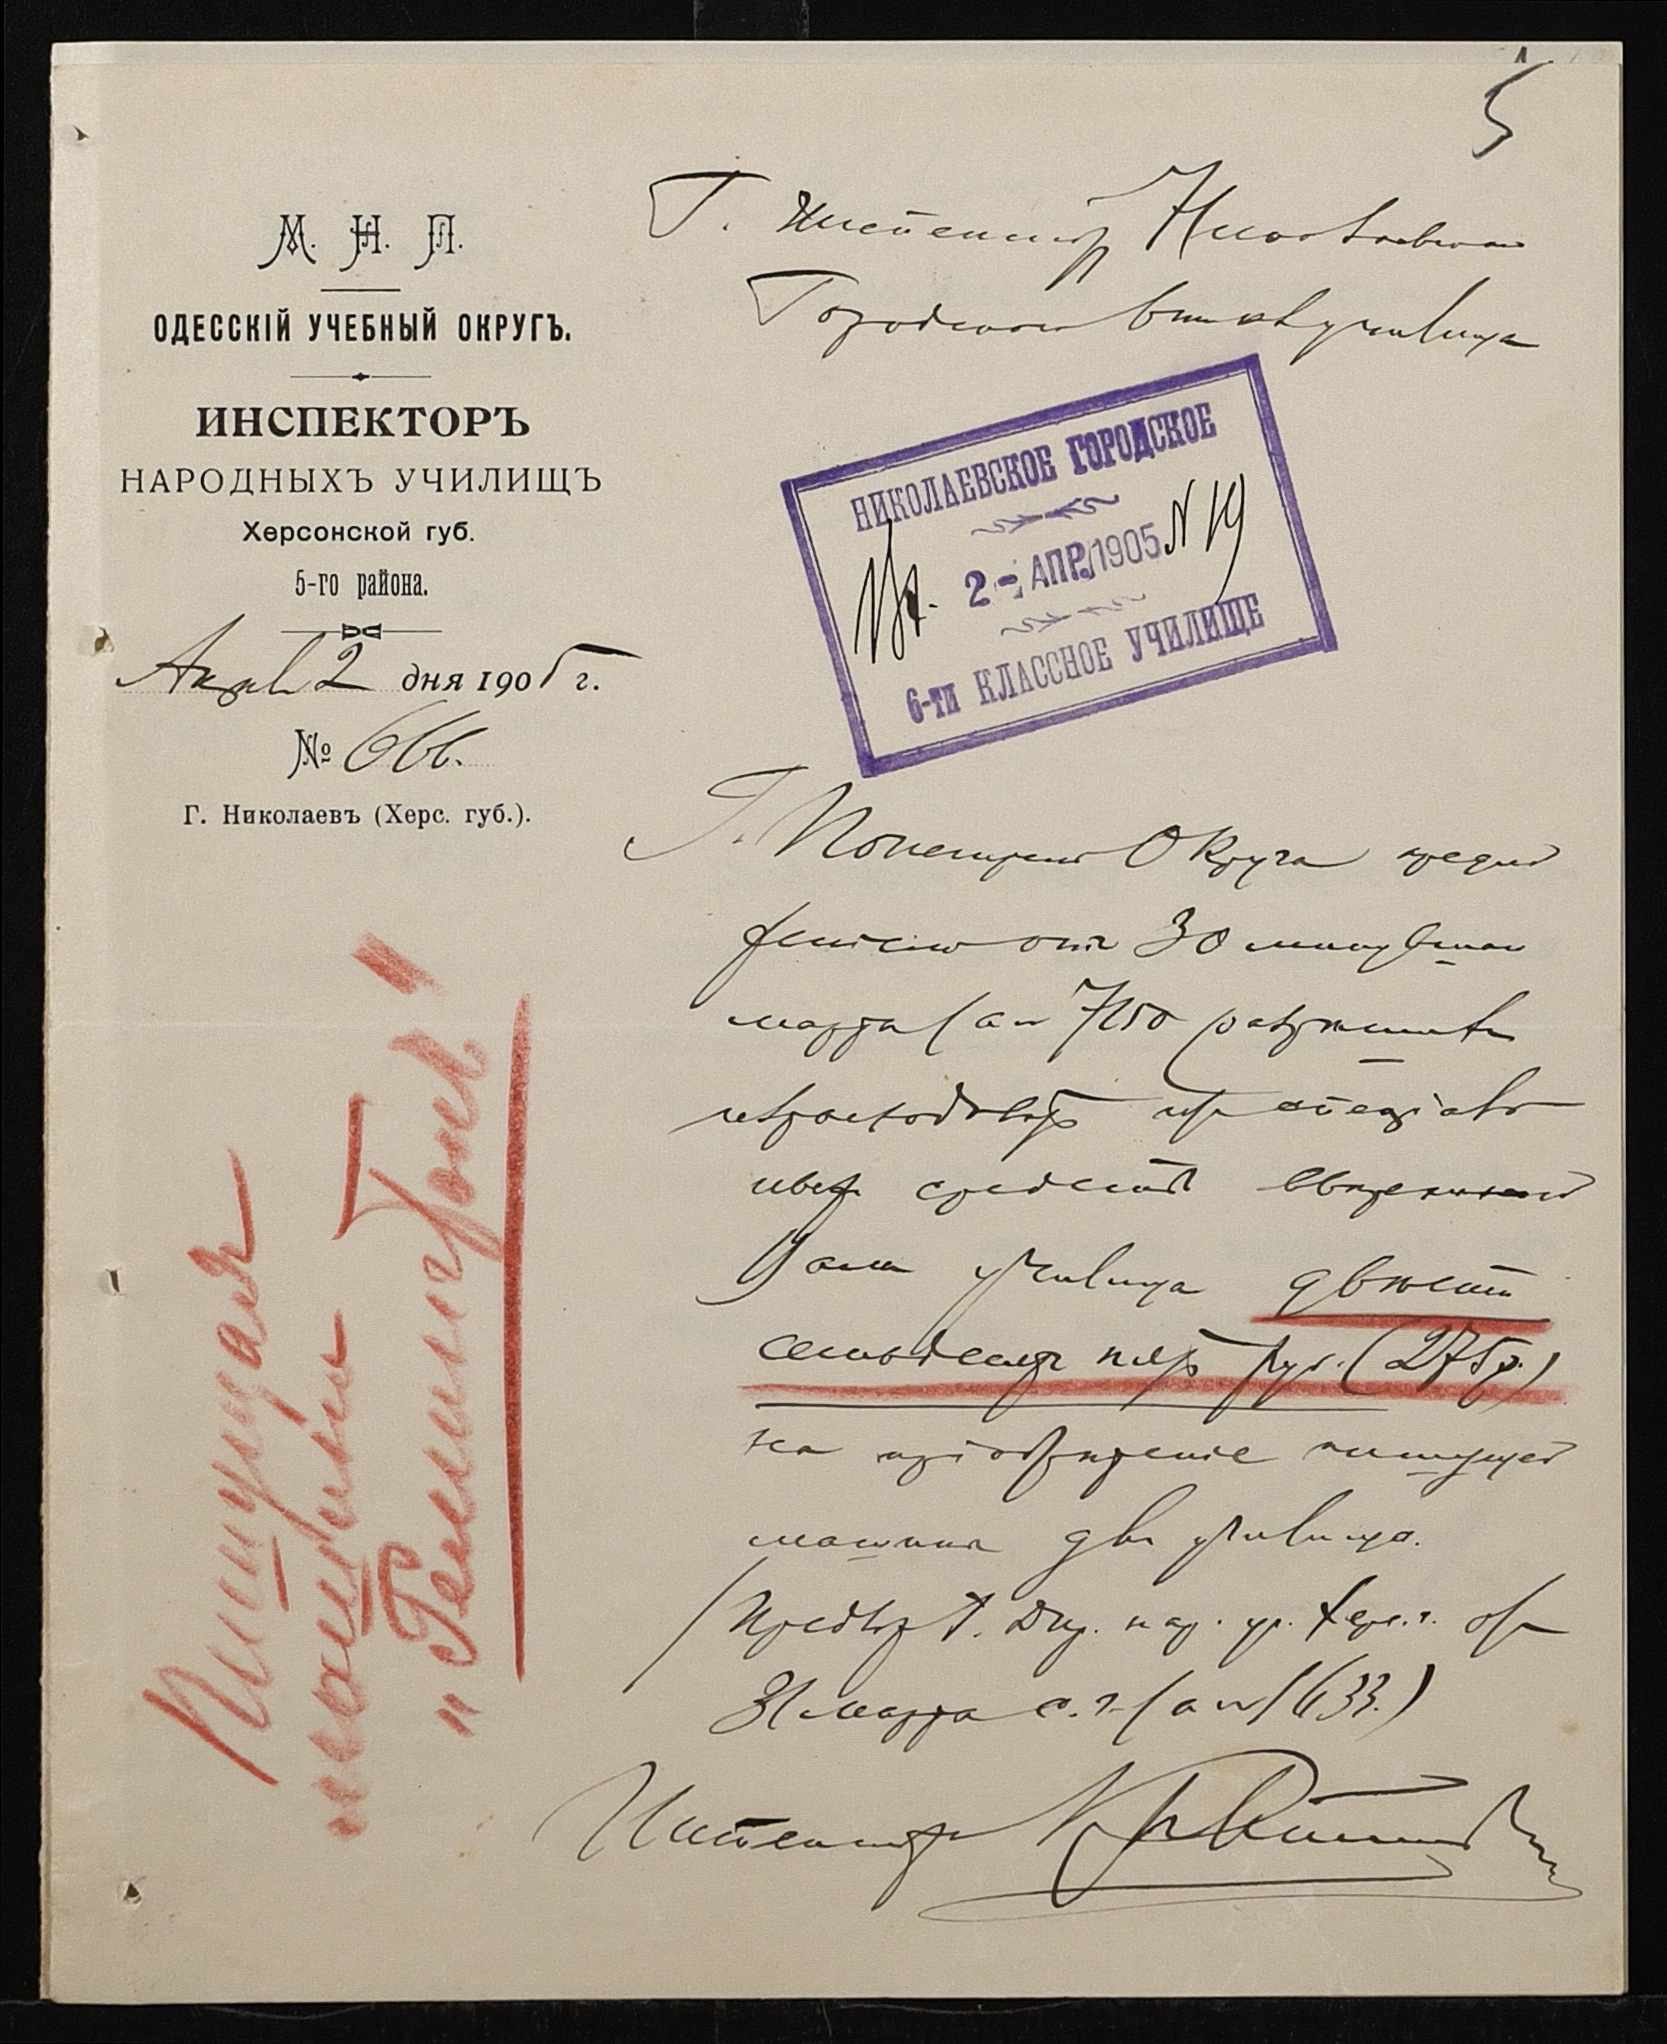 5
М. Н. П.
ОДЕССКІЙ УЧЕБНЫЙ ОКРУГЪ.
ИНСПЕКТОРЪ
НАРОДНЫХЪ УЧИЛИЩЪ
Херсонской губ.
5-го района.
Апрѣл 2 дня 1905 г.
№ 666.
Г. Николаевъ (Херс. губ.).
Г. Инспектору Николаевскаго
Городского 6ти кл училища
НИКОЛАЕВСКОЕ ГОРОДСКОЕ
Вх. 2 - АПР. 1905 N 19
6-ти КЛАССНОЕ УЧИЛИЩЕ
Г. Попечитель Округа предло
женіемъ отъ 30 минувшаго
марта за № 7150 разрѣшилъ
израсходовать изъ спеціаль
ныхъ средствъ ввѣреннаго
Вамъ училища двѣсти
семьдесятъ пять руб. (275 р.)
на пріобрѣтеніе пишущей
машины для училища.
/Предлож Г. Дир. нар. уч. Херс. г. отъ
31 марта с. г. за № 1633.)
Инспекторъ
Пишущая
машина
"Ремингтонъ"